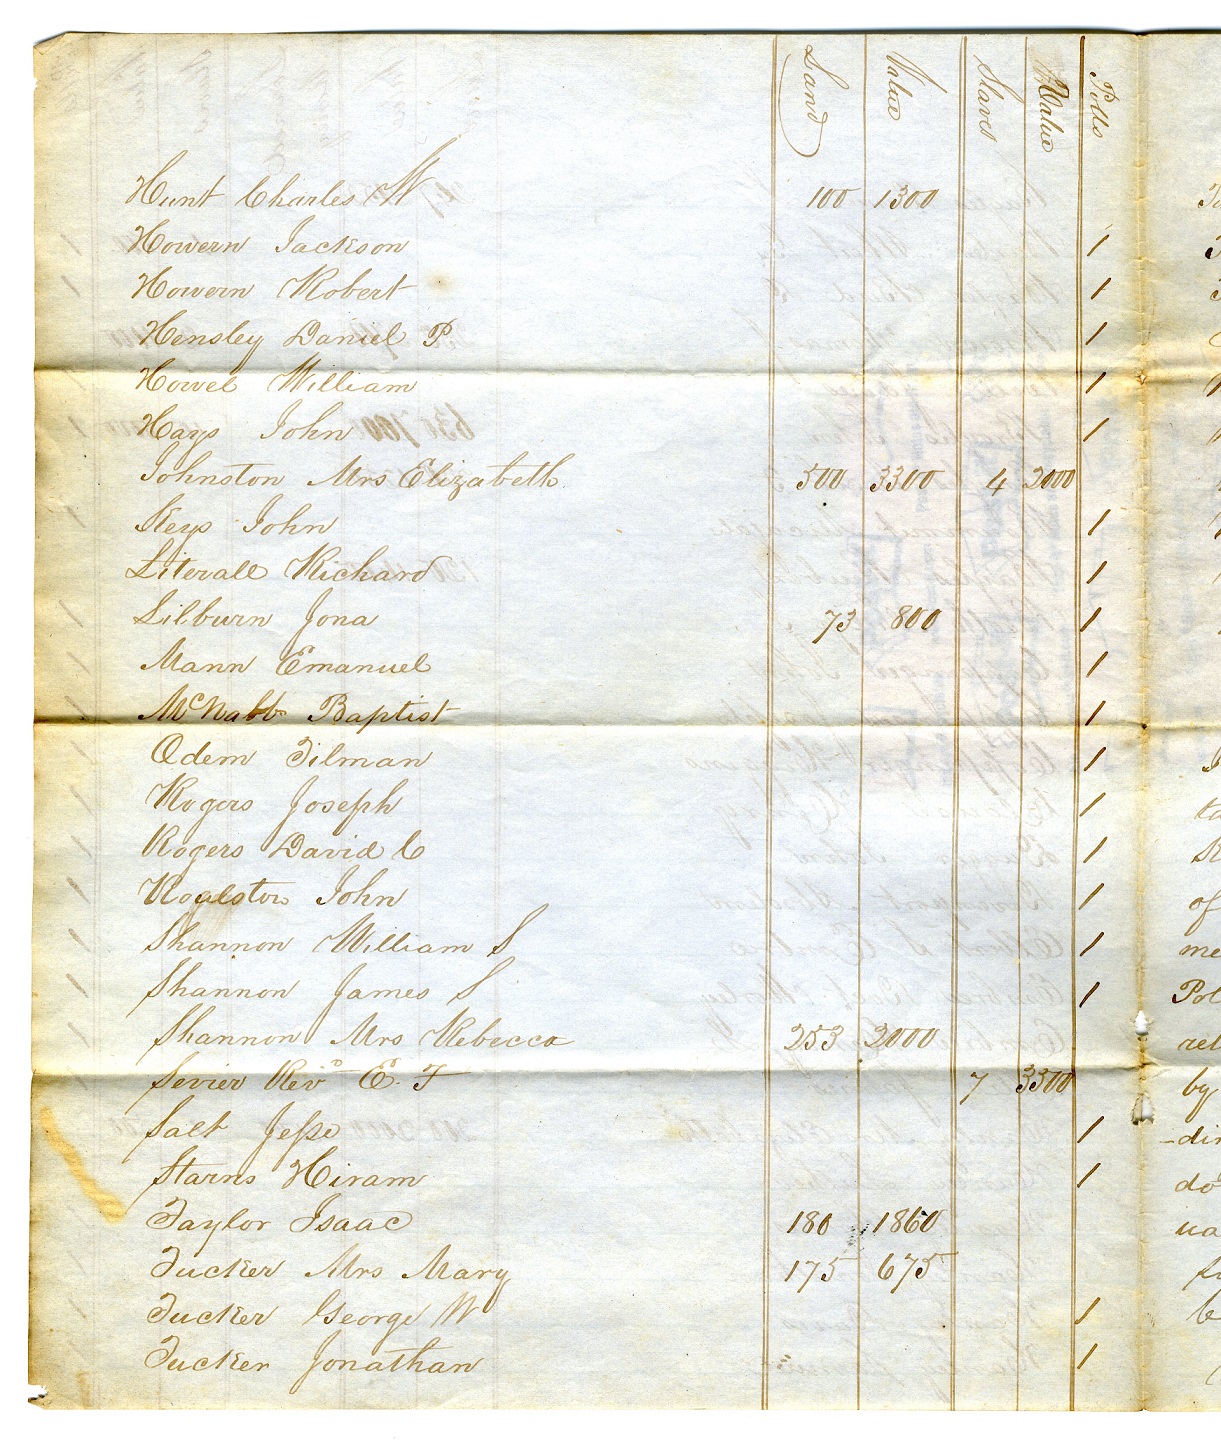 Land Value Slaves Value Polls
Hunt Charles W 100 1300
Howern Jackson 1
Howern Robert 1
Hensley Daniel P. 1
Howel William 1
Hays John 1
Johnston Mrs Elizabeth 500 3300 4 2000
Keys John 1
Literall Richard 1
Lilburn Jona 73 800 1
Mann Emanuel 1
McNabb Baptist 1
Odem Tilman 1
Rogers Joseph 1
Rogers David C 1
Roalston John 1
Shannon William S 1
Shannon James S 1
Shannon Mrs Rebecca 253 2000
Sevier Revd E. F 7 3300
Salt Jesse 1
Starns Hiram 1
Taylor Isaac 180 1860
Tucker Mrs Mary 175 675
Tucker George W 1
Tucker Jonathan 1
of
me
Pol
rel
by
-dir
do